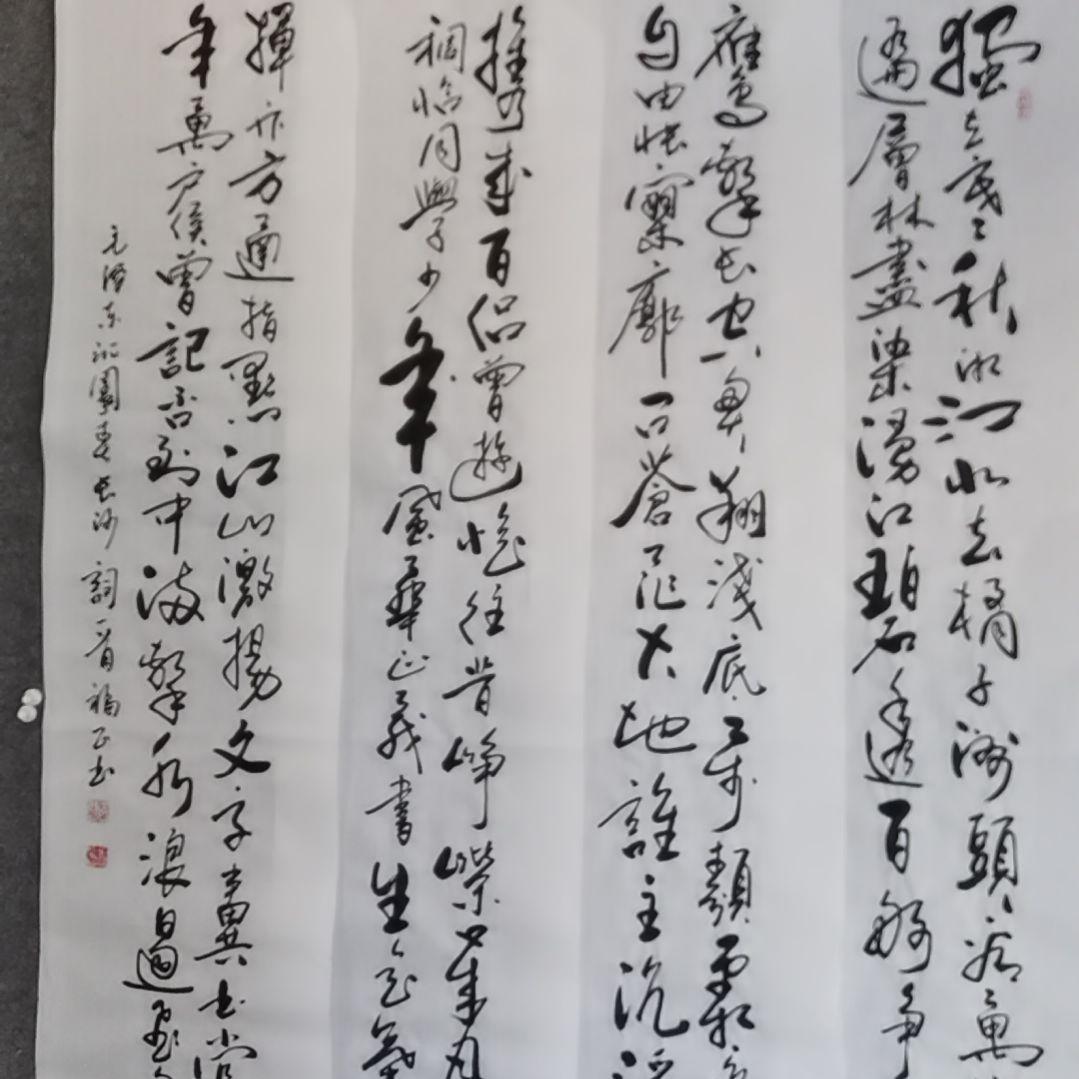 獨立寒秋湘江北去橘子洲頭看萬
遍層林盡染漫江碧透百舸爭
鷹擊長空魚翔淺底万類霜
自由悵寥廓問蒼茫大地誰主沉浮
攜來百侣曾遊憶往昔崢嶸歲月
稠恰同學少年風華正茂書生意氣
揮斥方遒指點江山激揚文字糞土當
年萬戶侯曾記否到中流擊水浪遏飛
毛澤東沁園春長沙詞一首福正书